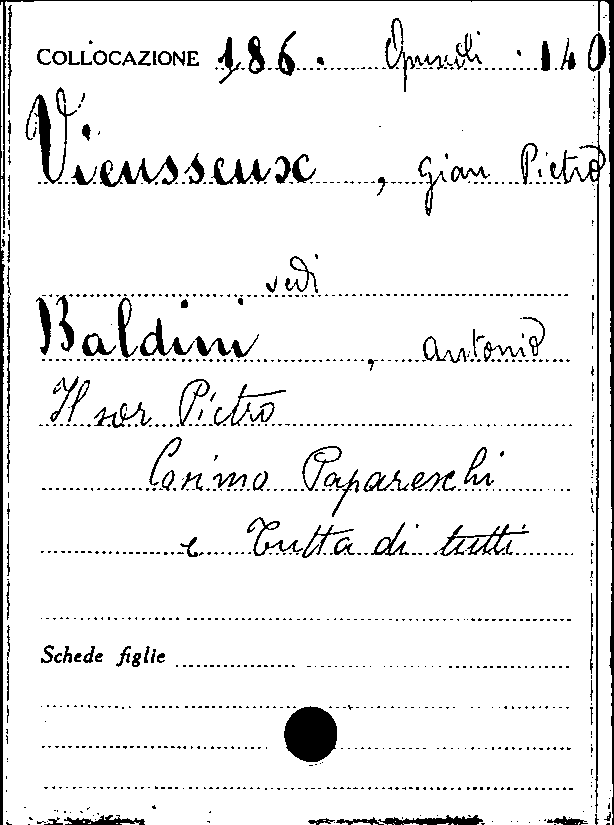 COLLOCAZIONE 186. Opuscoli . 140
Vieusseux, Gian Pietro
vedi
Baldini, Antonio
Il sor Pietro
Cosimo Papareschi
e Tutta di tutti
Schede figlie